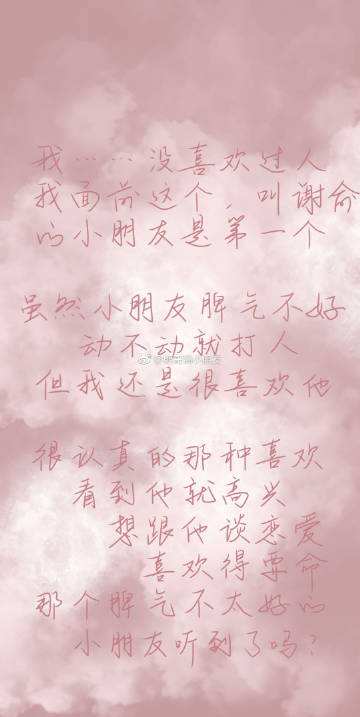 我……没喜欢过人
我面前这个，叫谢俞
的小朋友是第一个
虽然小朋友脾气不好
动不动就打人
但我还是很喜欢他
很认真的那种喜欢
看到他就高兴
想跟他谈恋爱
喜欢得要命
那个脾气不太好的
小朋友听到了吗？